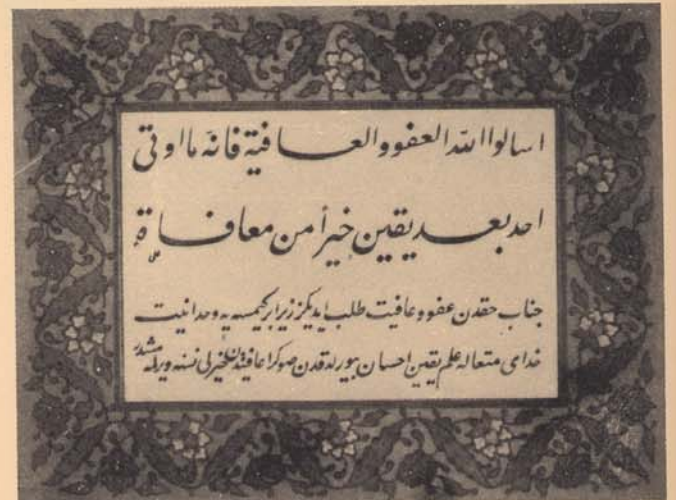 اسالوا الله العفو والعافية فانه ما اوتى
احد بعد يقين خيرأ من معافاة
جناب حقدن عفو وعافيت طلب ايديكز زيرا بر كيمسه يه وحدانيت
خداى متعاله علم يقين احسان بيورلدقدن صوكرا عافيتدن خيرلى نسنه ويرلمه مشدر